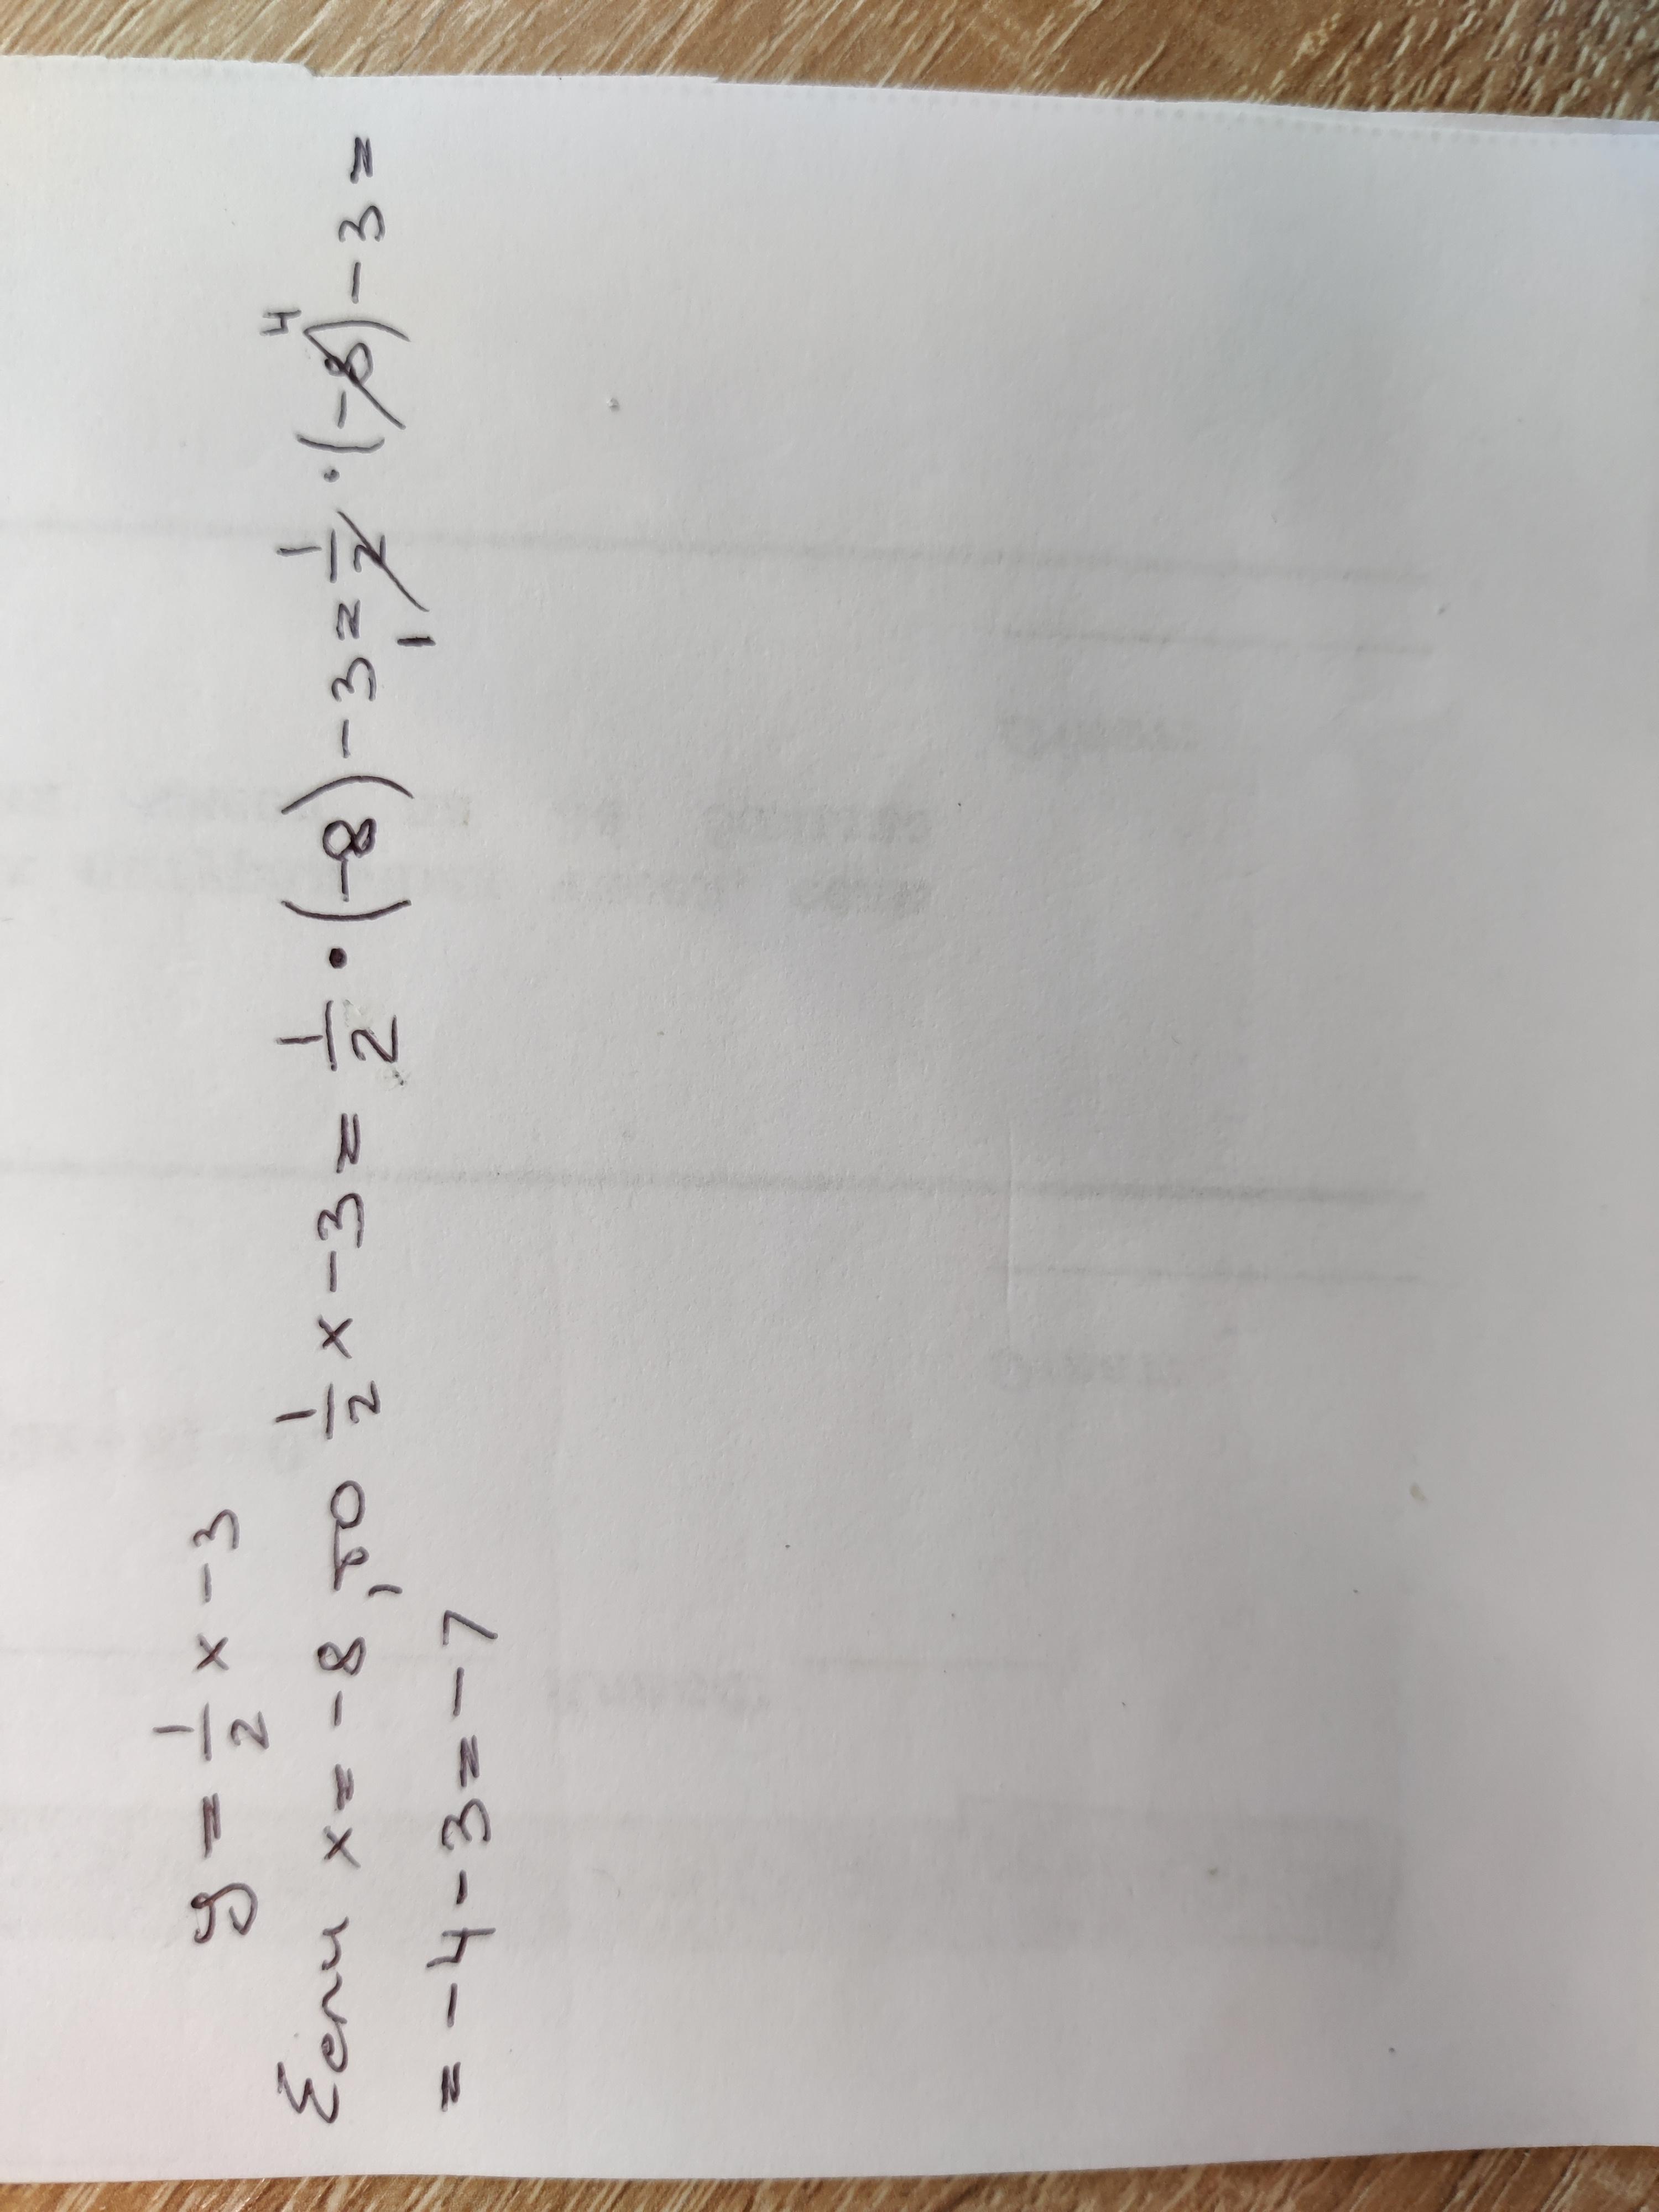 y = 1/2 x - 3
Если x = -8, то 1/2 x - 3 = 1/2 · (-8) - 3 = 1/2 1 · (-8 4) - 3 =
= -4 - 3 = -7